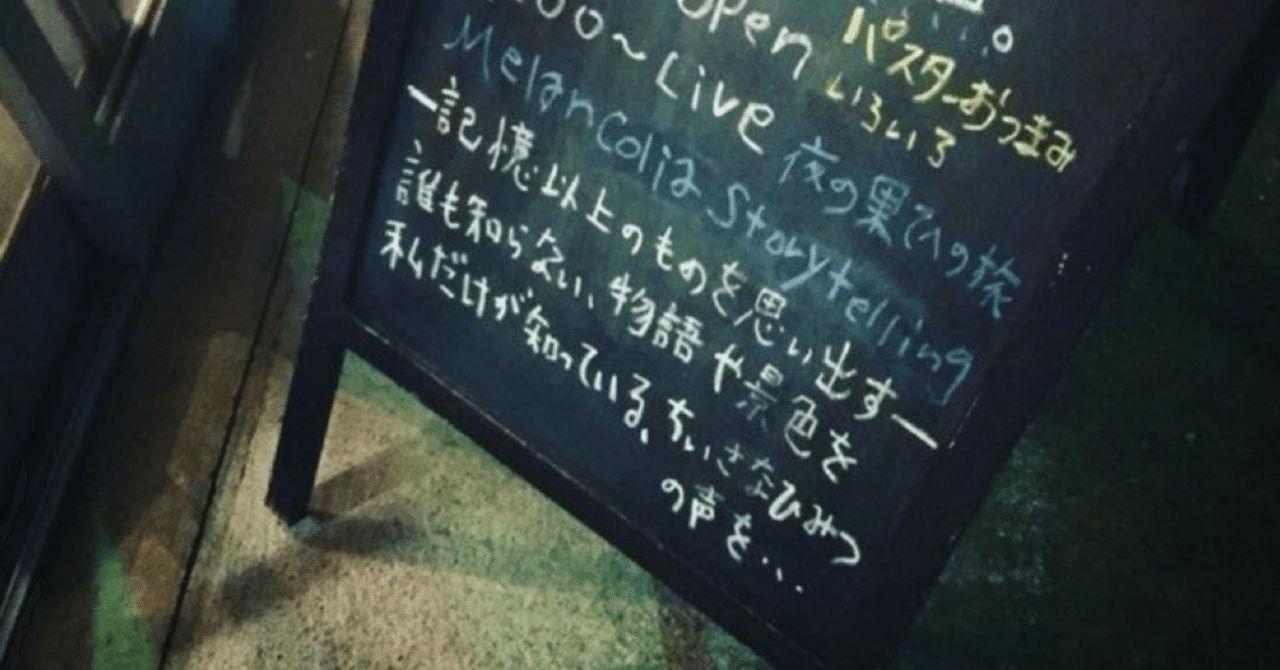 Open パスタ おつまみ
いろいろ
00~Live 夜の果ひの旅
Melancolia Storytelling
ー記憶以上のものを思い出すー
誰も知らない、物語や景色を
私だけが知っている、ちいさなひみつ
の声を...